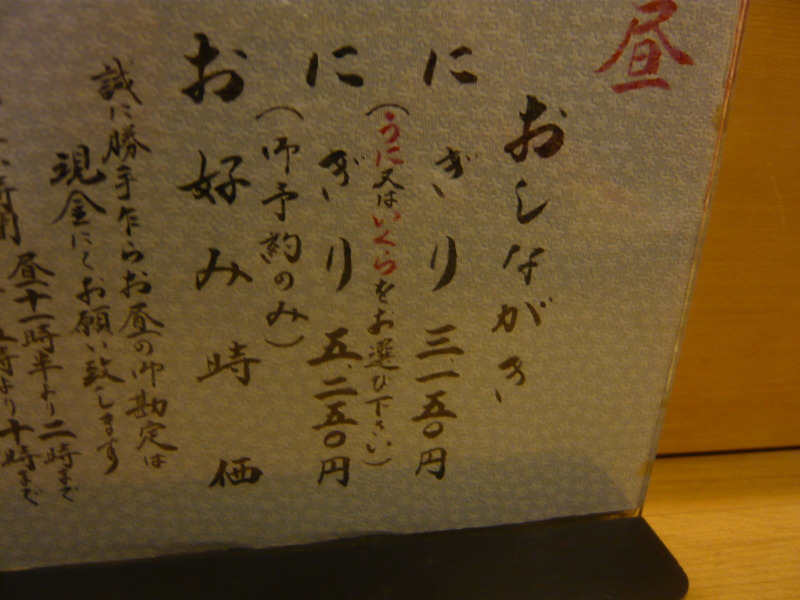 昼
おしながき
にぎり 三、一五〇円
(うに又はいくらをお選び下さい)
にぎり 五、二五〇円
(御予約のみ)
お好み 時価
誠に勝手乍らお昼の御勘定は
現金にてお願い致します
昼 十一時半より二時まで
時より十時まで